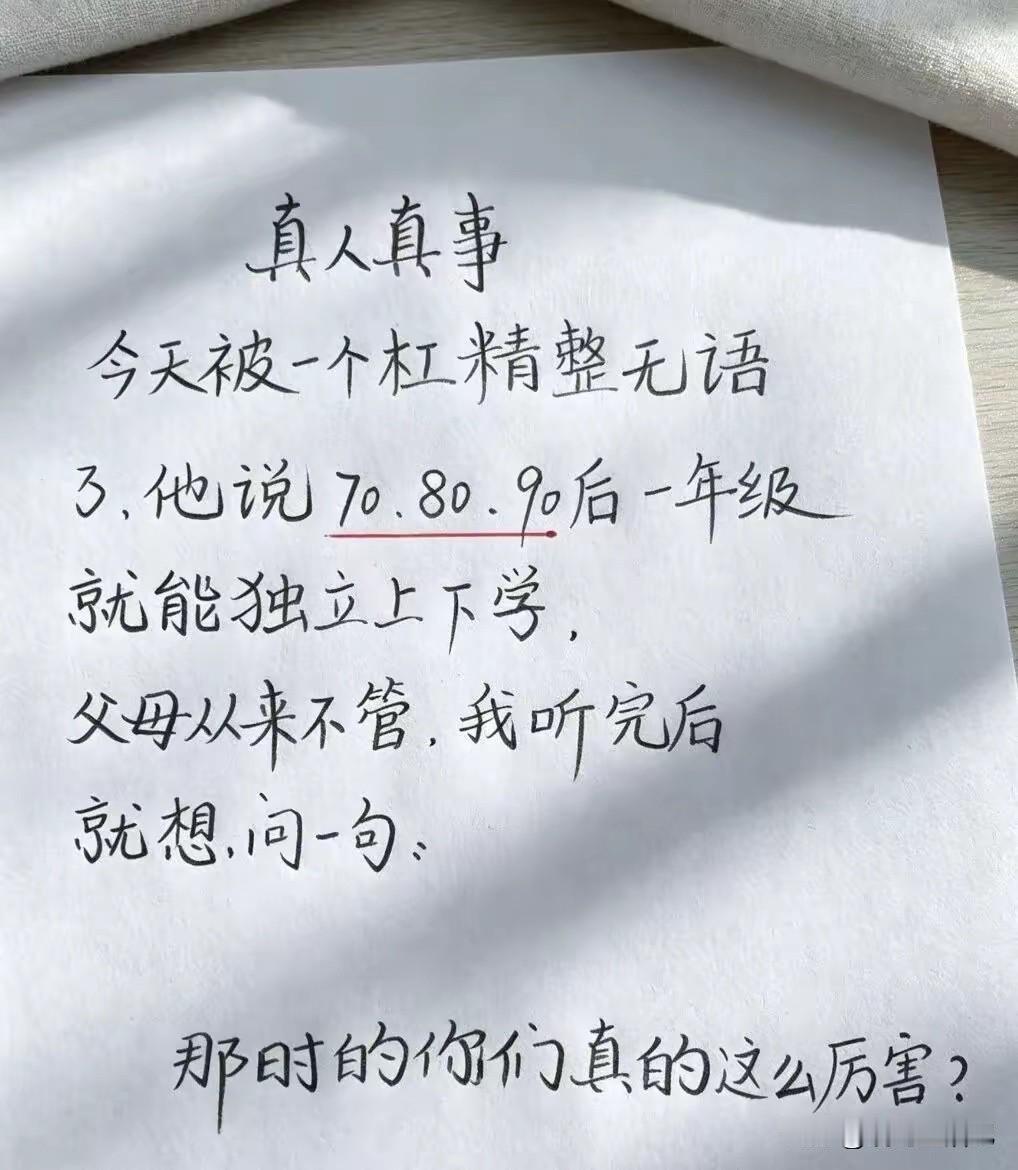 真人真事
今天被一个杠精整无语
了,他说70.80.90后一年级
就能独立上下学,
父母从来不管,我听完后
就想,问一句:
那时的你们真的这么厉害?